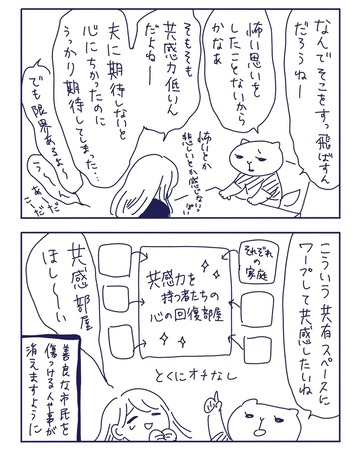 なんでそこをすっ飛ばすん
だろうねー
怖い思いを
したことないから
かなあ
そもそも
共感力低いん
だよねー
夫に期待しないと
心にちかったのに
うっかり期待してしまった…
でも限界あるよ〜
う〜
あーだ
こーだ
怖いとか
悲しいとか感じないっ
こういう共有スペースに
ワープして共感したいね
それぞれの
家庭
共感力を
持つ者たちの
心の回復部屋
共感部屋
ほし〜い
とくにオチなし
善良な市民を
傷つける人や事が
消えますように